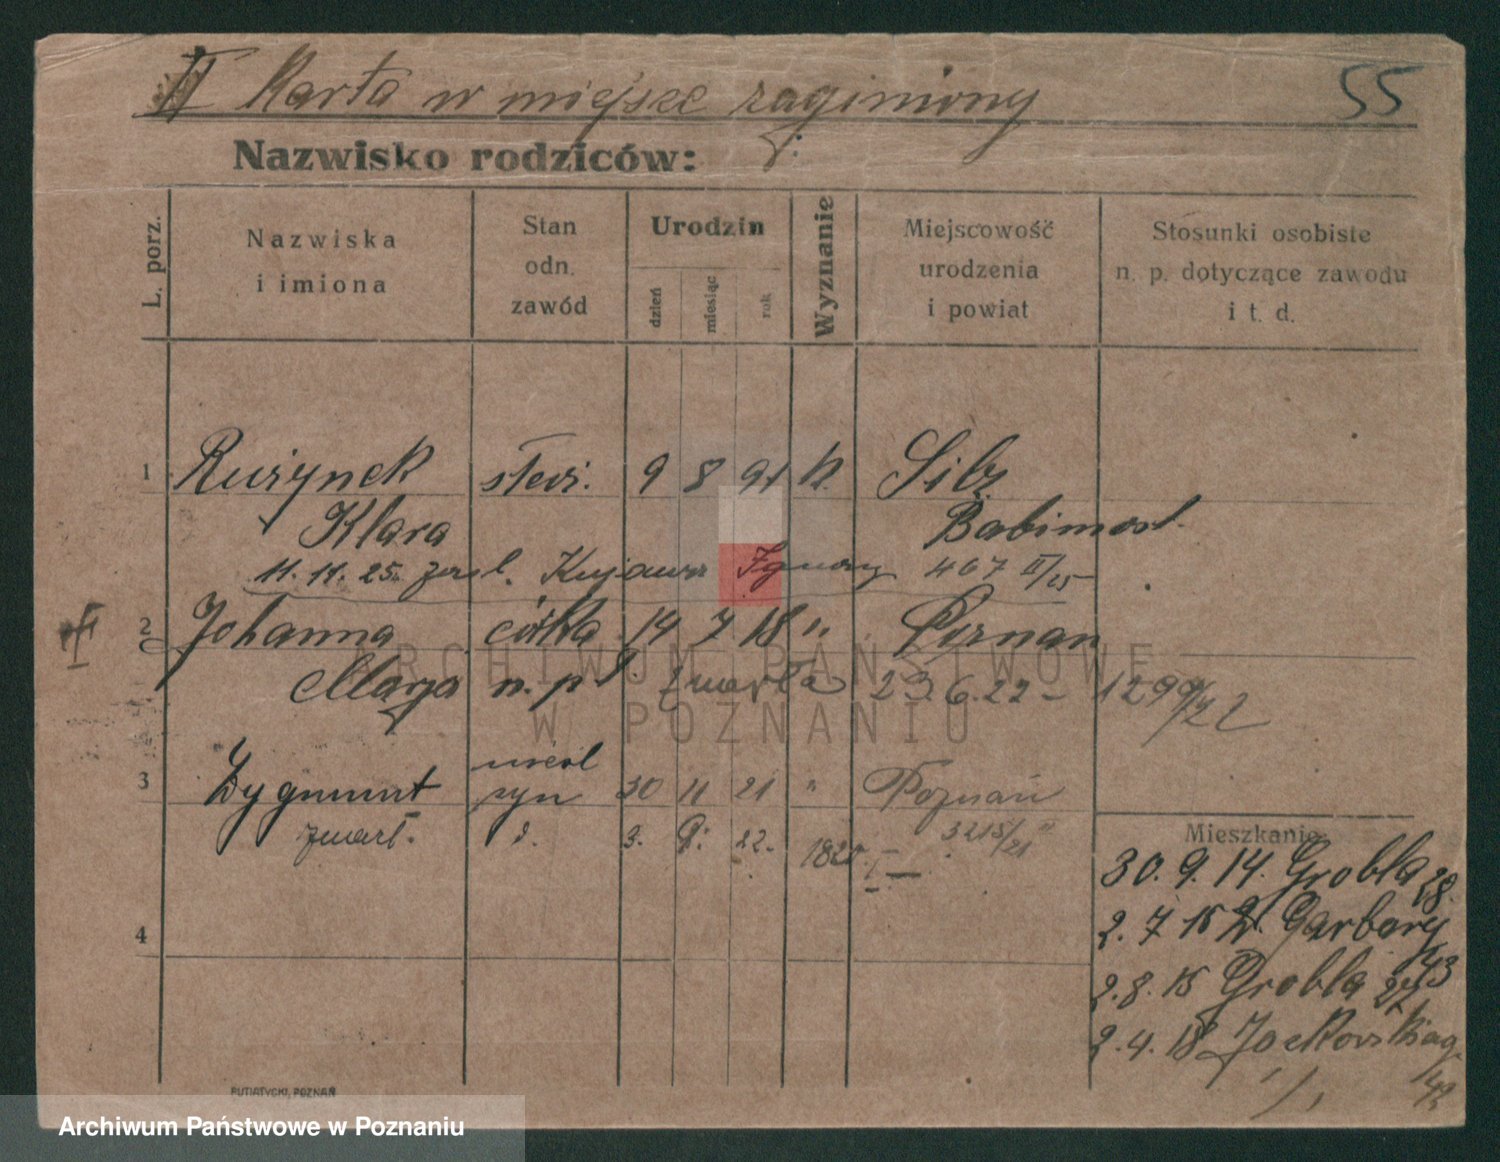 II Karta w miejsce zaginionej
55
Nazwisko rodziców:
L. porz.
Nazwiska
i imiona
Stan
odn.
zawód
Urodzin
dzień
miesiąc
rok
Wyznanie
Miejscowość
urodzenia
i powiat
Stosunki osobiste
n. p. dotyczące zawodu
i t. d.
1 Rużynek 9 8 91 k.
Klara Babimost.
11.11.25. zasl. Kujawa Ignacy 467 II/25
II
2 Johanna córka 14 7 18 ". Poznan
n. p. Zmarła 23.6.22 - 1299/22
3 Zygmunt syn 30 11 21 " Poznań
zmarł. d. 3. 22. 3215/21
4
Mieszkanie
30.9.14. Grobla 28.
2.7 15 W. Garbary 43
2.8.15 Grobla 27
2.4.18 Jackowskiego
42
PUTIATYCKI, POZNAŃ
ARCHIWUM PAŃSTWOWE
W POZNANIU
Archiwum Państwowe w Poznaniu